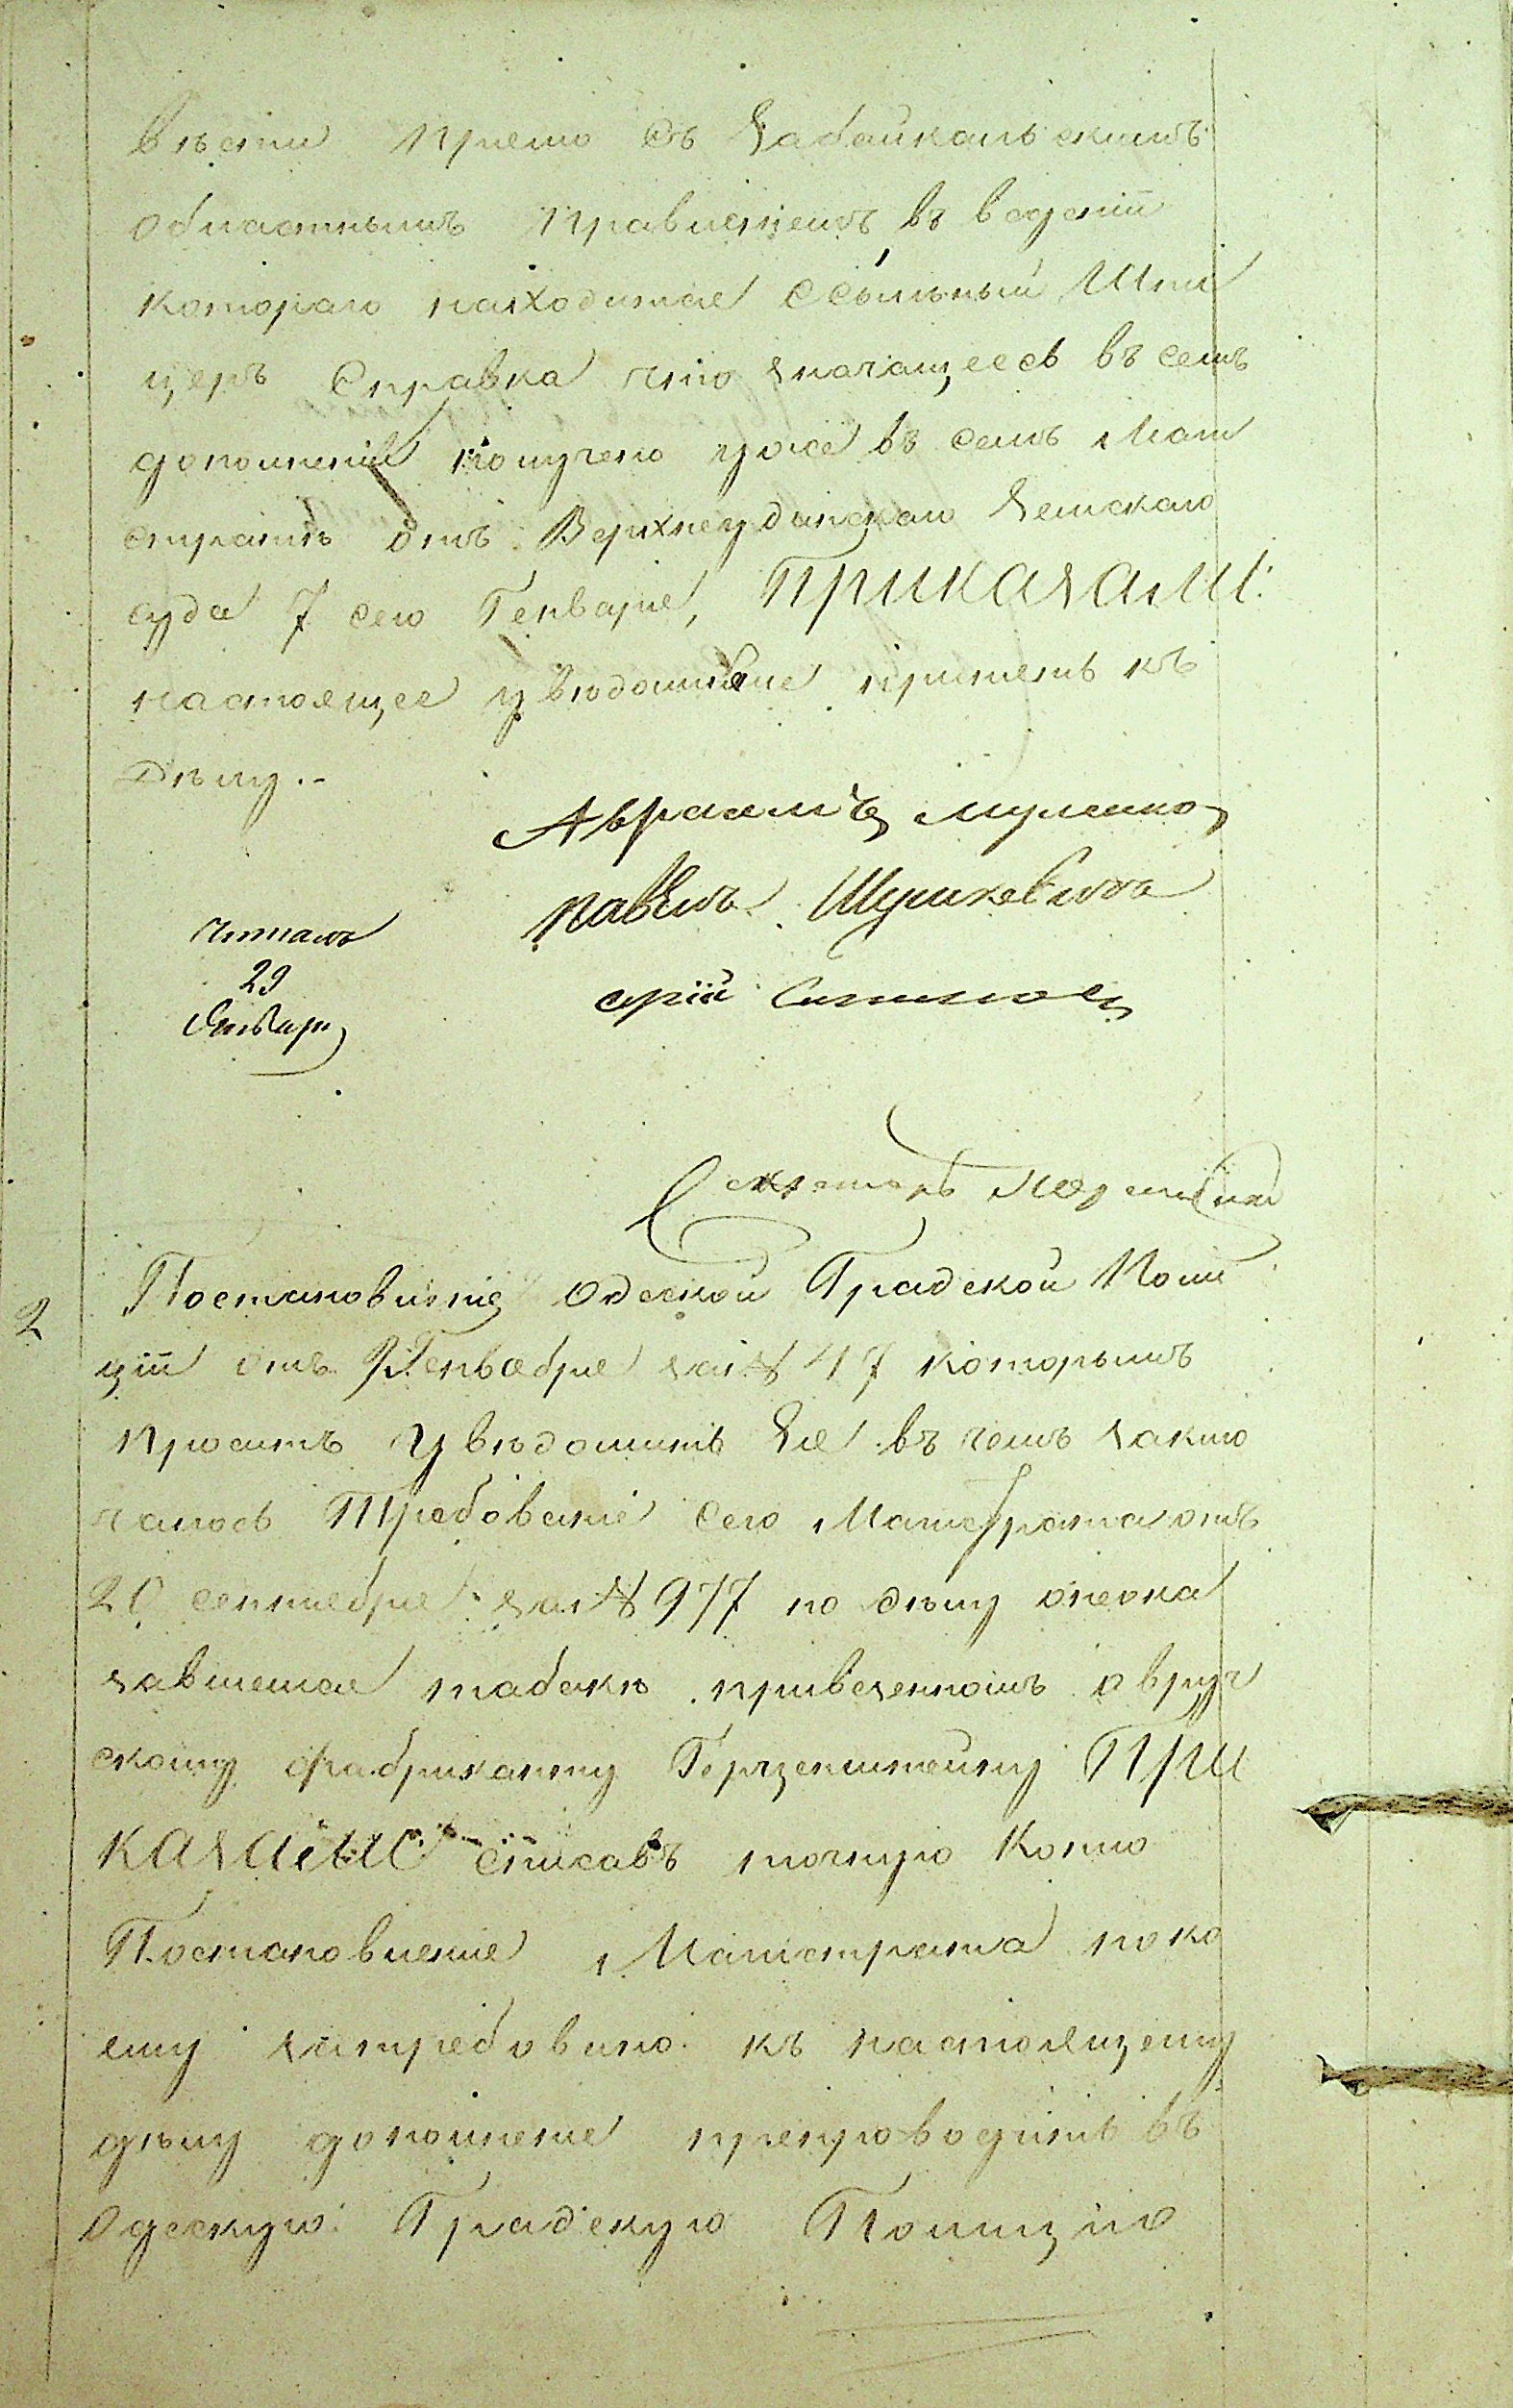 въсти прямо съ Забайкальскимъ
областнымъ Правленіемъ въ веденіи
котораго находится ссыльный Шпи
церъ Справка что значащееся въ семъ
дополненіи получено уже въ семъ Маги
стратѣ отъ Верхнеудинскаго Земскаго
суда 7 сего Генваря, Приказали:
настоящее увѣдомленіе пріимѣть къ
Дѣлу.-
Авраамъ
Павелъ Шушкевичъ
Читалъ
29
Январ
Секретарь
2
Постановленіе Одеской Градской Поли
ціи отъ Генваря за № 47 которымъ
проситъ увѣдомить Ее въ чемъ заклю
чалось Требованіе сего Магистрата отъ
20 сентября за № 977 по дѣлу о неока
завшемся табакѣ привезенномъ овруч
скому фабриканту Герценштейну При
казали списавъ точную Копію
Постановленія Магистрата по ко
ему затребовано къ настоящему
дѣлу дополненіе препроводить въ
Одескую Градскую Полицію